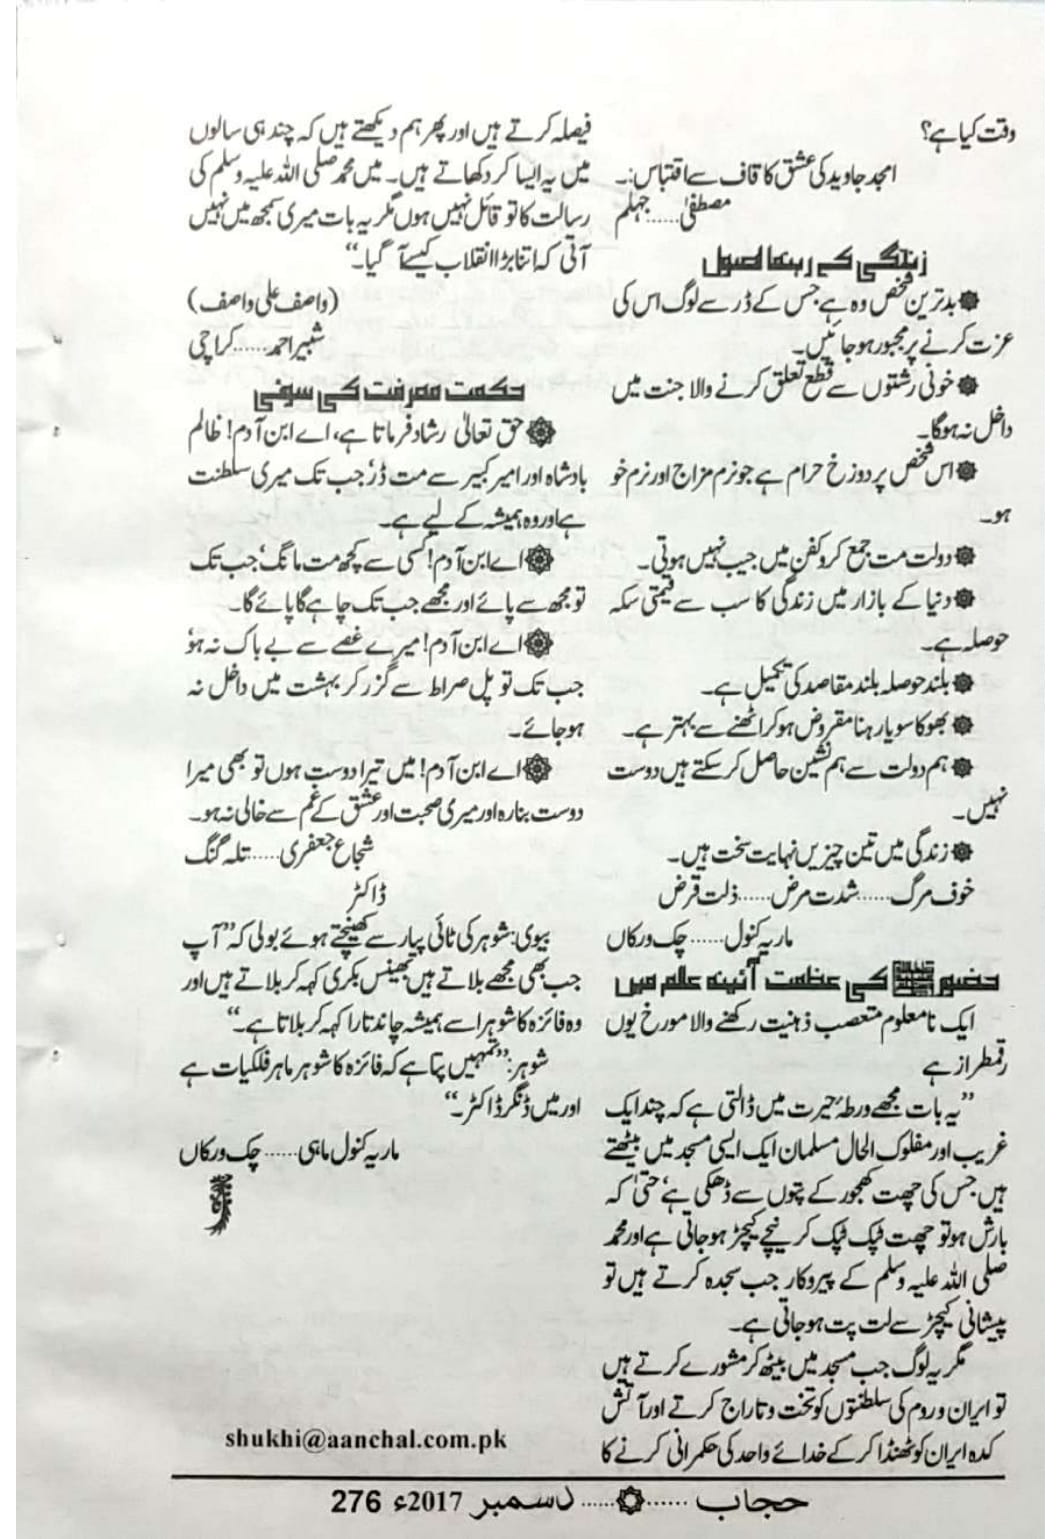 وقت کیا ہے؟
امجد جاوید کی عشق کا قاف سے اقتباس:۔
مصطفیٰ......جہلم
زندگی کے رہنما اصول
۞ بدترین شخص وہ ہے جس کے ڈر سے لوگ اس کی
عزت کرنے پر مجبور ہو جائیں۔
۞ خونی رشتوں سے قطع تعلق کرنے والا جنت میں
داخل نہ ہوگا۔
۞ اس شخص پر دوزخ حرام ہے جو نرم مزاج اور نرم خو
ہو۔
۞ دولت مت جمع کرو کفن میں جیب نہیں ہوتی۔
۞ دنیا کے بازار میں زندگی کا سب سے قیمتی سکہ
حوصلہ ہے۔
۞ بلند حوصلہ بلند مقاصد کی تکمیل ہے۔
۞ بھوکا سویا رہنا مقروض ہوکر اٹھنے سے بہتر ہے۔
۞ ہم دولت سے ہم نشین حاصل کرسکتے ہیں دوست
نہیں۔
۞ زندگی میں تین چیزیں نہایت سخت ہیں۔
خوف مرگ......شدت مرض......ذلت قرض
ماریہ کنول......چک ورکاں
حضور ﷺ کی عظمت آئینہ عالم میں
ایک نامعلوم متعصب ذہنیت رکھنے والا مورخ یوں
رقمطراز ہے
”یہ بات مجھے ورطۂ حیرت میں ڈالتی ہے کہ چند ایک
غریب اور مفلوک الحال مسلمان ایک ایسی مسجد میں بیٹھتے
ہیں جس کی چھت کھجور کے پتوں سے ڈھکی ہے‘ حتیٰ کہ
بارش ہو تو چھت ٹپک ٹپک کر نیچے کیچڑ ہوجاتی ہے اور محمد
صلی اللہ علیہ وسلم کے پیروکار جب سجدہ کرتے ہیں تو
پیشانی کیچڑ سے لت پت ہوجاتی ہے۔
مگر یہ لوگ جب مسجد میں بیٹھ کر مشورے کرتے ہیں
تو ایران و روم کی سلطنتوں کو تخت و تاراج کرتے اور آتش
کدہ ایران کو ٹھنڈا کرکے خدائے واحد کی حکمرانی کرنے کا
فیصلہ کرتے ہیں اور پھر ہم دیکھتے ہیں کہ چند ہی سالوں
میں یہ ایسا کر دکھاتے ہیں۔ میں محمد صلی اللہ علیہ وسلم کی
رسالت کا تو قائل نہیں ہوں مگر یہ بات میری سمجھ میں نہیں
آتی کہ اتنا بڑا انقلاب کیسے آ گیا۔“
(واصف علی واصف)
شبیر احمد......کراچی
حکمت معرفت کی سوئی
۞ حق تعالیٰ رشاد فرماتا ہے، اے ابن آدم! ظالم
بادشاہ اور امیر کبیر سے مت ڈر‘ جب تک میری سلطنت
ہے اور وہ ہمیشہ کے لیے ہے۔
۞ اے ابن آدم! کسی سے کچھ مت مانگ‘ جب تک
تو مجھ سے پائے اور مجھے جب تک چاہے گا پائے گا۔
۞ اے ابن آدم! میرے غصے سے بے باک نہ ہو‘
جب تک تو پل صراط سے گزر کر بہشت میں داخل نہ
ہوجائے۔
۞ اے ابن آدم! میں تیرا دوست ہوں تو بھی میرا
دوست بنا رہ اور میری صحبت اور عشق کے غم سے خالی نہ ہو۔
شجاع جعفری......تلہ گنگ
ڈاکٹر
بیوی: شوہر کی ٹائی پیار سے کھینچتے ہوئے بولی کہ ”آپ
جب بھی مجھے بلاتے ہیں بھینس بکری کہہ کر بلاتے ہیں اور
وہ فائزہ کا شوہر اسے ہمیشہ چاند تارا کہہ کر بلاتا ہے۔“
شوہر: ”تمہیں پتا ہے کہ فائزہ کا شوہر ماہر فلکیات ہے
اور میں ڈنگر ڈاکٹر۔“
ماریہ کنول ماہی......چک ورکاں
shukhi@aanchal.com.pk
حجاب ...... ۞ ...... دسمبر 2017ء 276